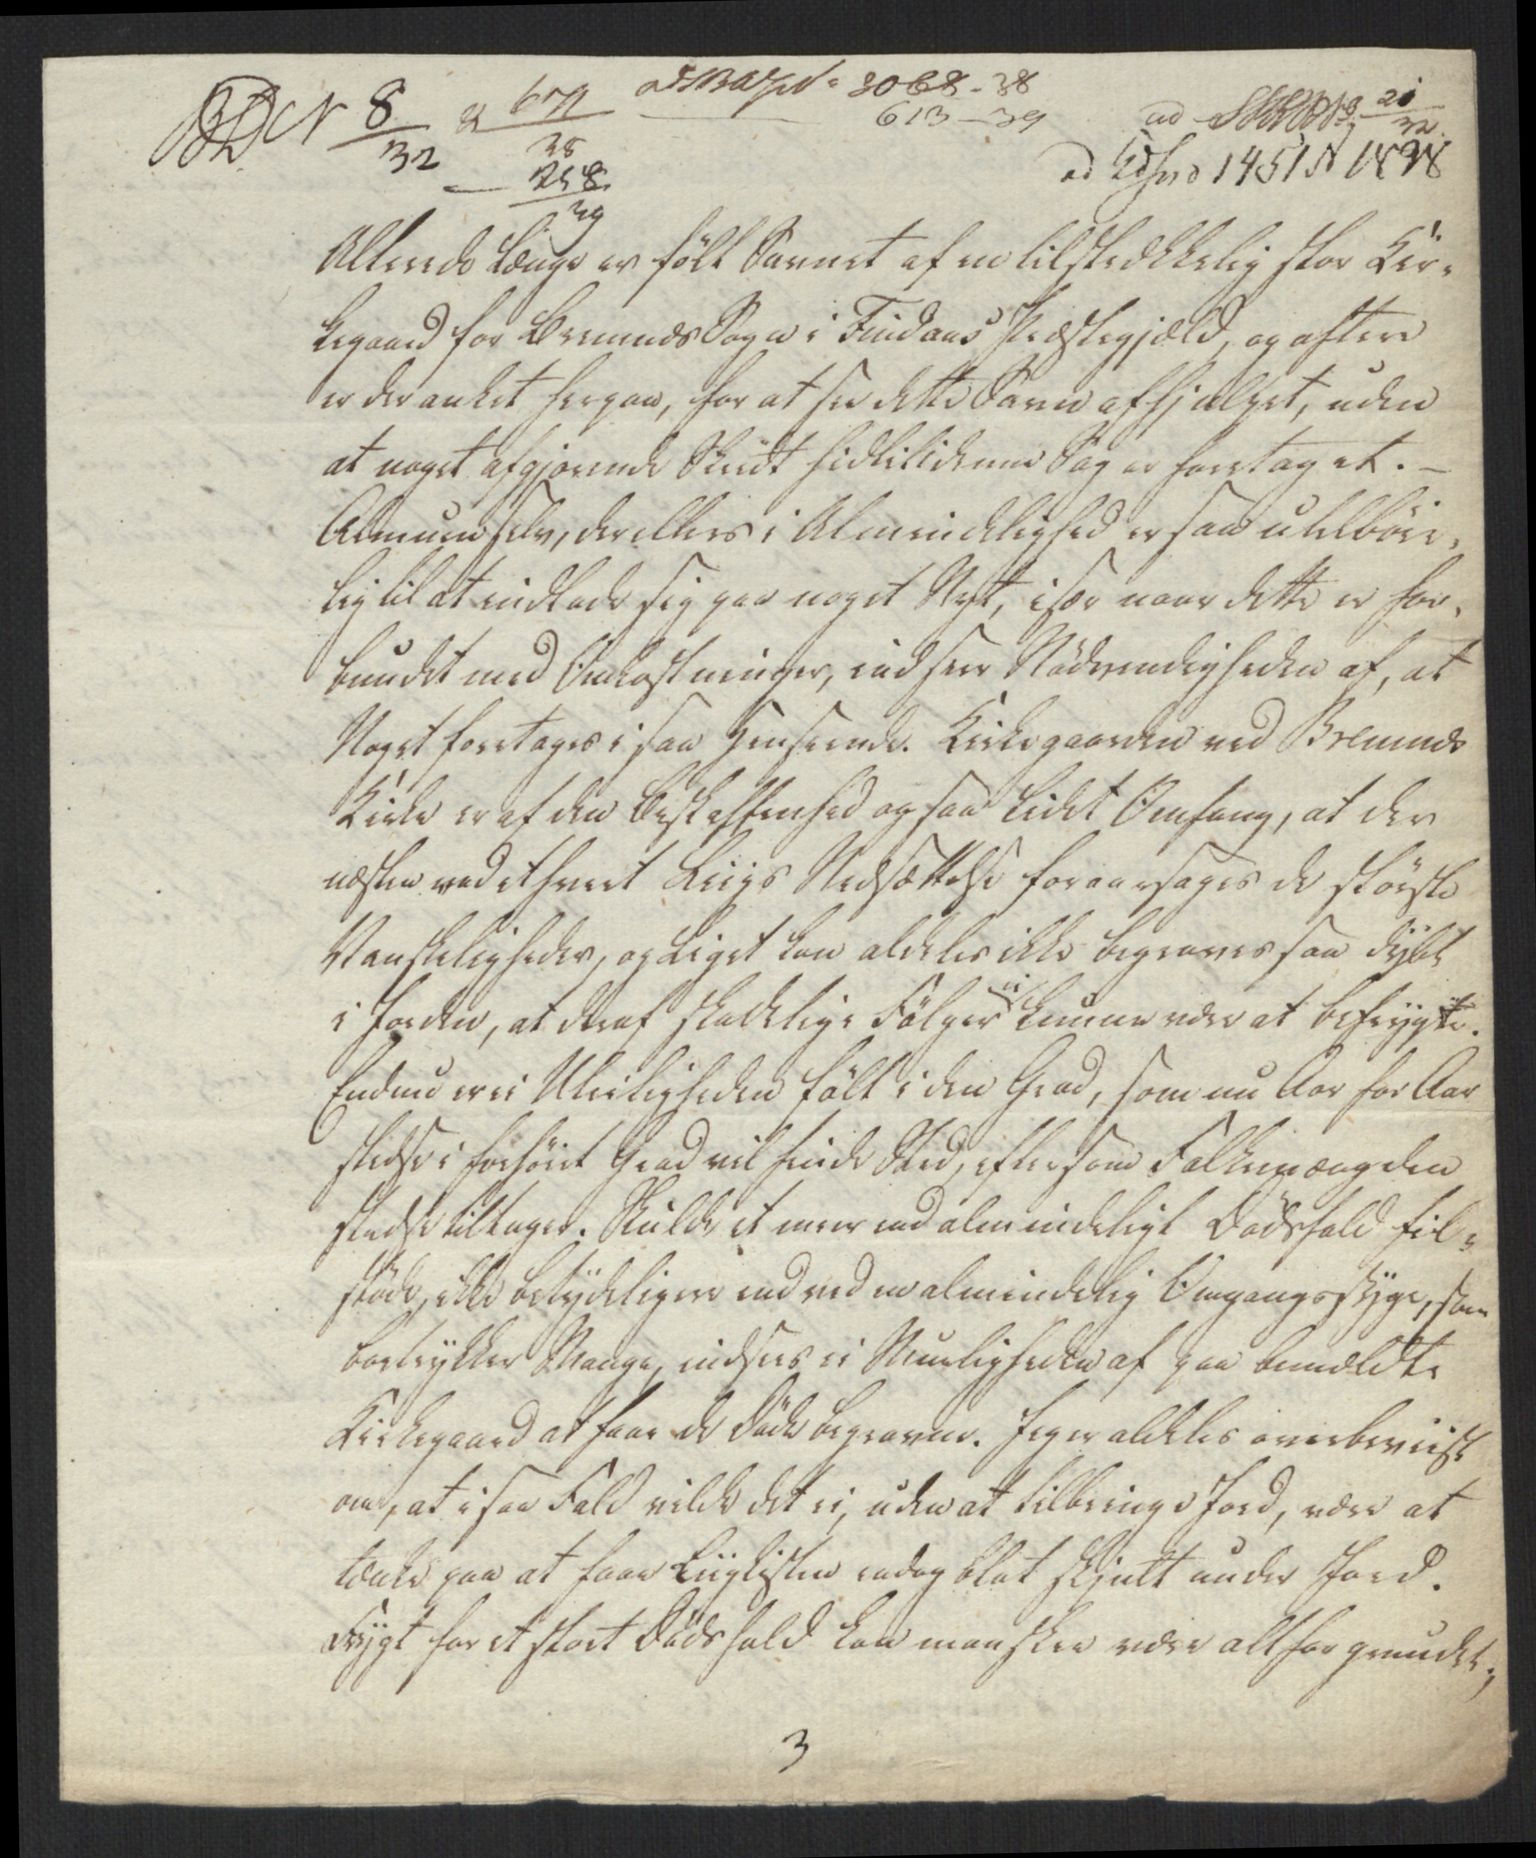 N 8/32 & 671/38 3068-38
258/39 613-39 ad 21/32
ad 1451 1828
Allerede længe er følt Savnet af en tilstrækkelig stor Kir-
kegaard for Bremnes Sogn i Findaas Præstegjæld, og oftere
er der anket herpaa, for at see dette Savn afhjulpet, uden
at noget afgjørende Skridt hidtil i denne Sag er foretaget. –
Almuen selv, der ellers i Almindelighed er saa utilböie-
lig til at indlade sig paa noget Nyt, især naar dette er for-
bundet med Omkostninger, indseer Nödvendigheden af, at
Noget foretages i saa Henseende. Kirkegaarden ved Bremnes
Kirke er af den Beskaffenhed og saa lidet Omfang, at der
næsten ved ethvert Liigs Nedsættelse foraarsages de störste
Vanskeligheder, og Liget kan aldeles ikke begraves saa dybt
i Jorden, at deraf skadelige Fölger ei kunne være at befrygte.
Endnu er ei Uleiligheden fölt i den Grad, som nu Aar for Aar
stedse i forhöiet Grad vil finde Sted, eftersom Folkemængden
stedse tiltager. Skulde et meer end almindeligt Dödsfald til-
stöde, ikke betydeligere end ved en almindelig Omgangssyge, som
bortrykker Mange, indsees ei Mueligheden af paa bemeldte
Kirkegaard at faae de Döde begravne. Jeg er aldeles overbeviist
om, at i saa Fald vilde det ei, uden at tilbringe Jord, være at
tænke paa at faae Liigkisten endog blot skjult under Jord.
Frygt for et stort Dödsfald kan maaskee være altfor grundet,
3